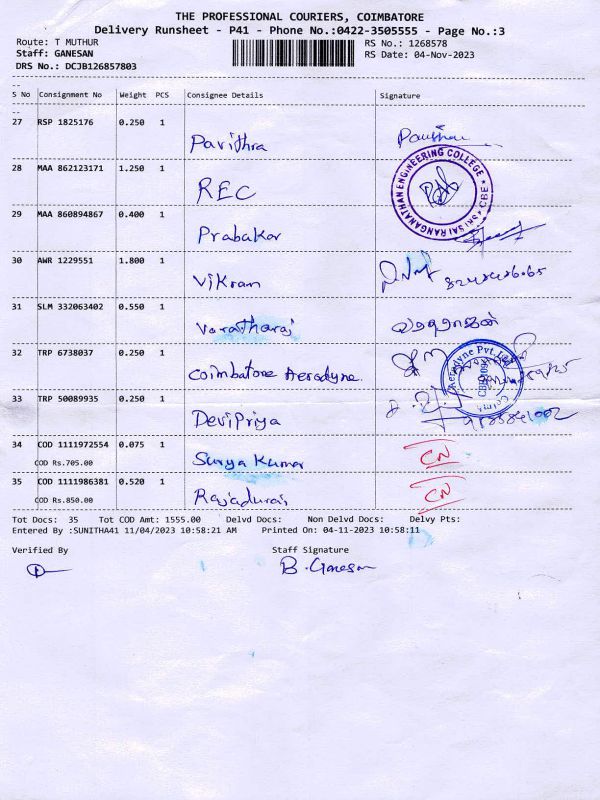 THE PROFESSIONAL COURIERS, COIMBATORE
Delivery Runsheet - P41 - Phone No.:0422-3505555 - Page No.:3
Route: T MUTHUR RS No.: 1268578
Staff: GANESAN RS Date: 04-Nov-2023
DRS No.: DCJB126857803
S No Consignment No Weight PCS Consignee Details Signature
27 RSP 1825176 0.250 1 Pavithra
28 MAA 862123171 1.250 1 REC
SRI SAI RANGANATHAN ENGINEERING COLLEGE CBE
29 MAA 860894867 0.400 1 Prabakar
30 AWR 1229551 1.800 1 Vikran
31 SLM 332063402 0.550 1 Varatharaj வரதராஜன்
32 TRP 6738037 0.250 1 Coimbatore Aerodyne.
Aerodyne Pvt.
33 TRP 50089935 0.250 1 Devipriya
34 COD 1111972554 0.075 1 Surya Kumar CN
COD Rs.705.00
35 COD 1111986381 0.520 1 Rajadurai CN
COD Rs.850.00
Tot Docs: 35 Tot COD Amt: 1555.00 Delvd Docs: Non Delvd Docs: Delvy Pts:
Entered By :SUNITHA41 11/04/2023 10:58:21 AM Printed On: 04-11-2023 10:58:11
Verified By Staff Signature
B. Ganesan